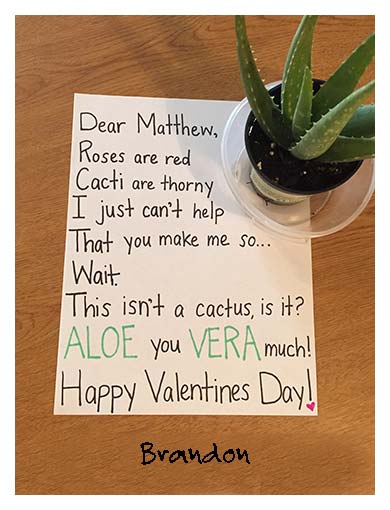 Dear Matthew,
Roses are red
Cacti are thorny
I just can't help
That you make me so...
Wait.
This isn't a cactus, is it?
ALOE you VERA much!
Happy Valentines Day!
Brandon